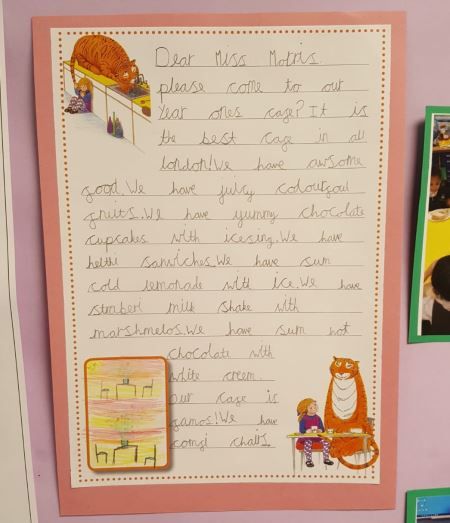 Dear Miss Morris.
please come to our
Year ones cafe? It is
the best cafe in all
london! We have awsome
food. We have juicy colourfoul
fruits. We have yummy chocolate
cupcakes with icesing. We have
helthi sanwiches. We have sum
cold lemonade with ice. We have
stmberi milk shake with
marshmelos. We have sum hot
chocolate with
white creem.
Our cafe is
famos! We have
comfi chairs.